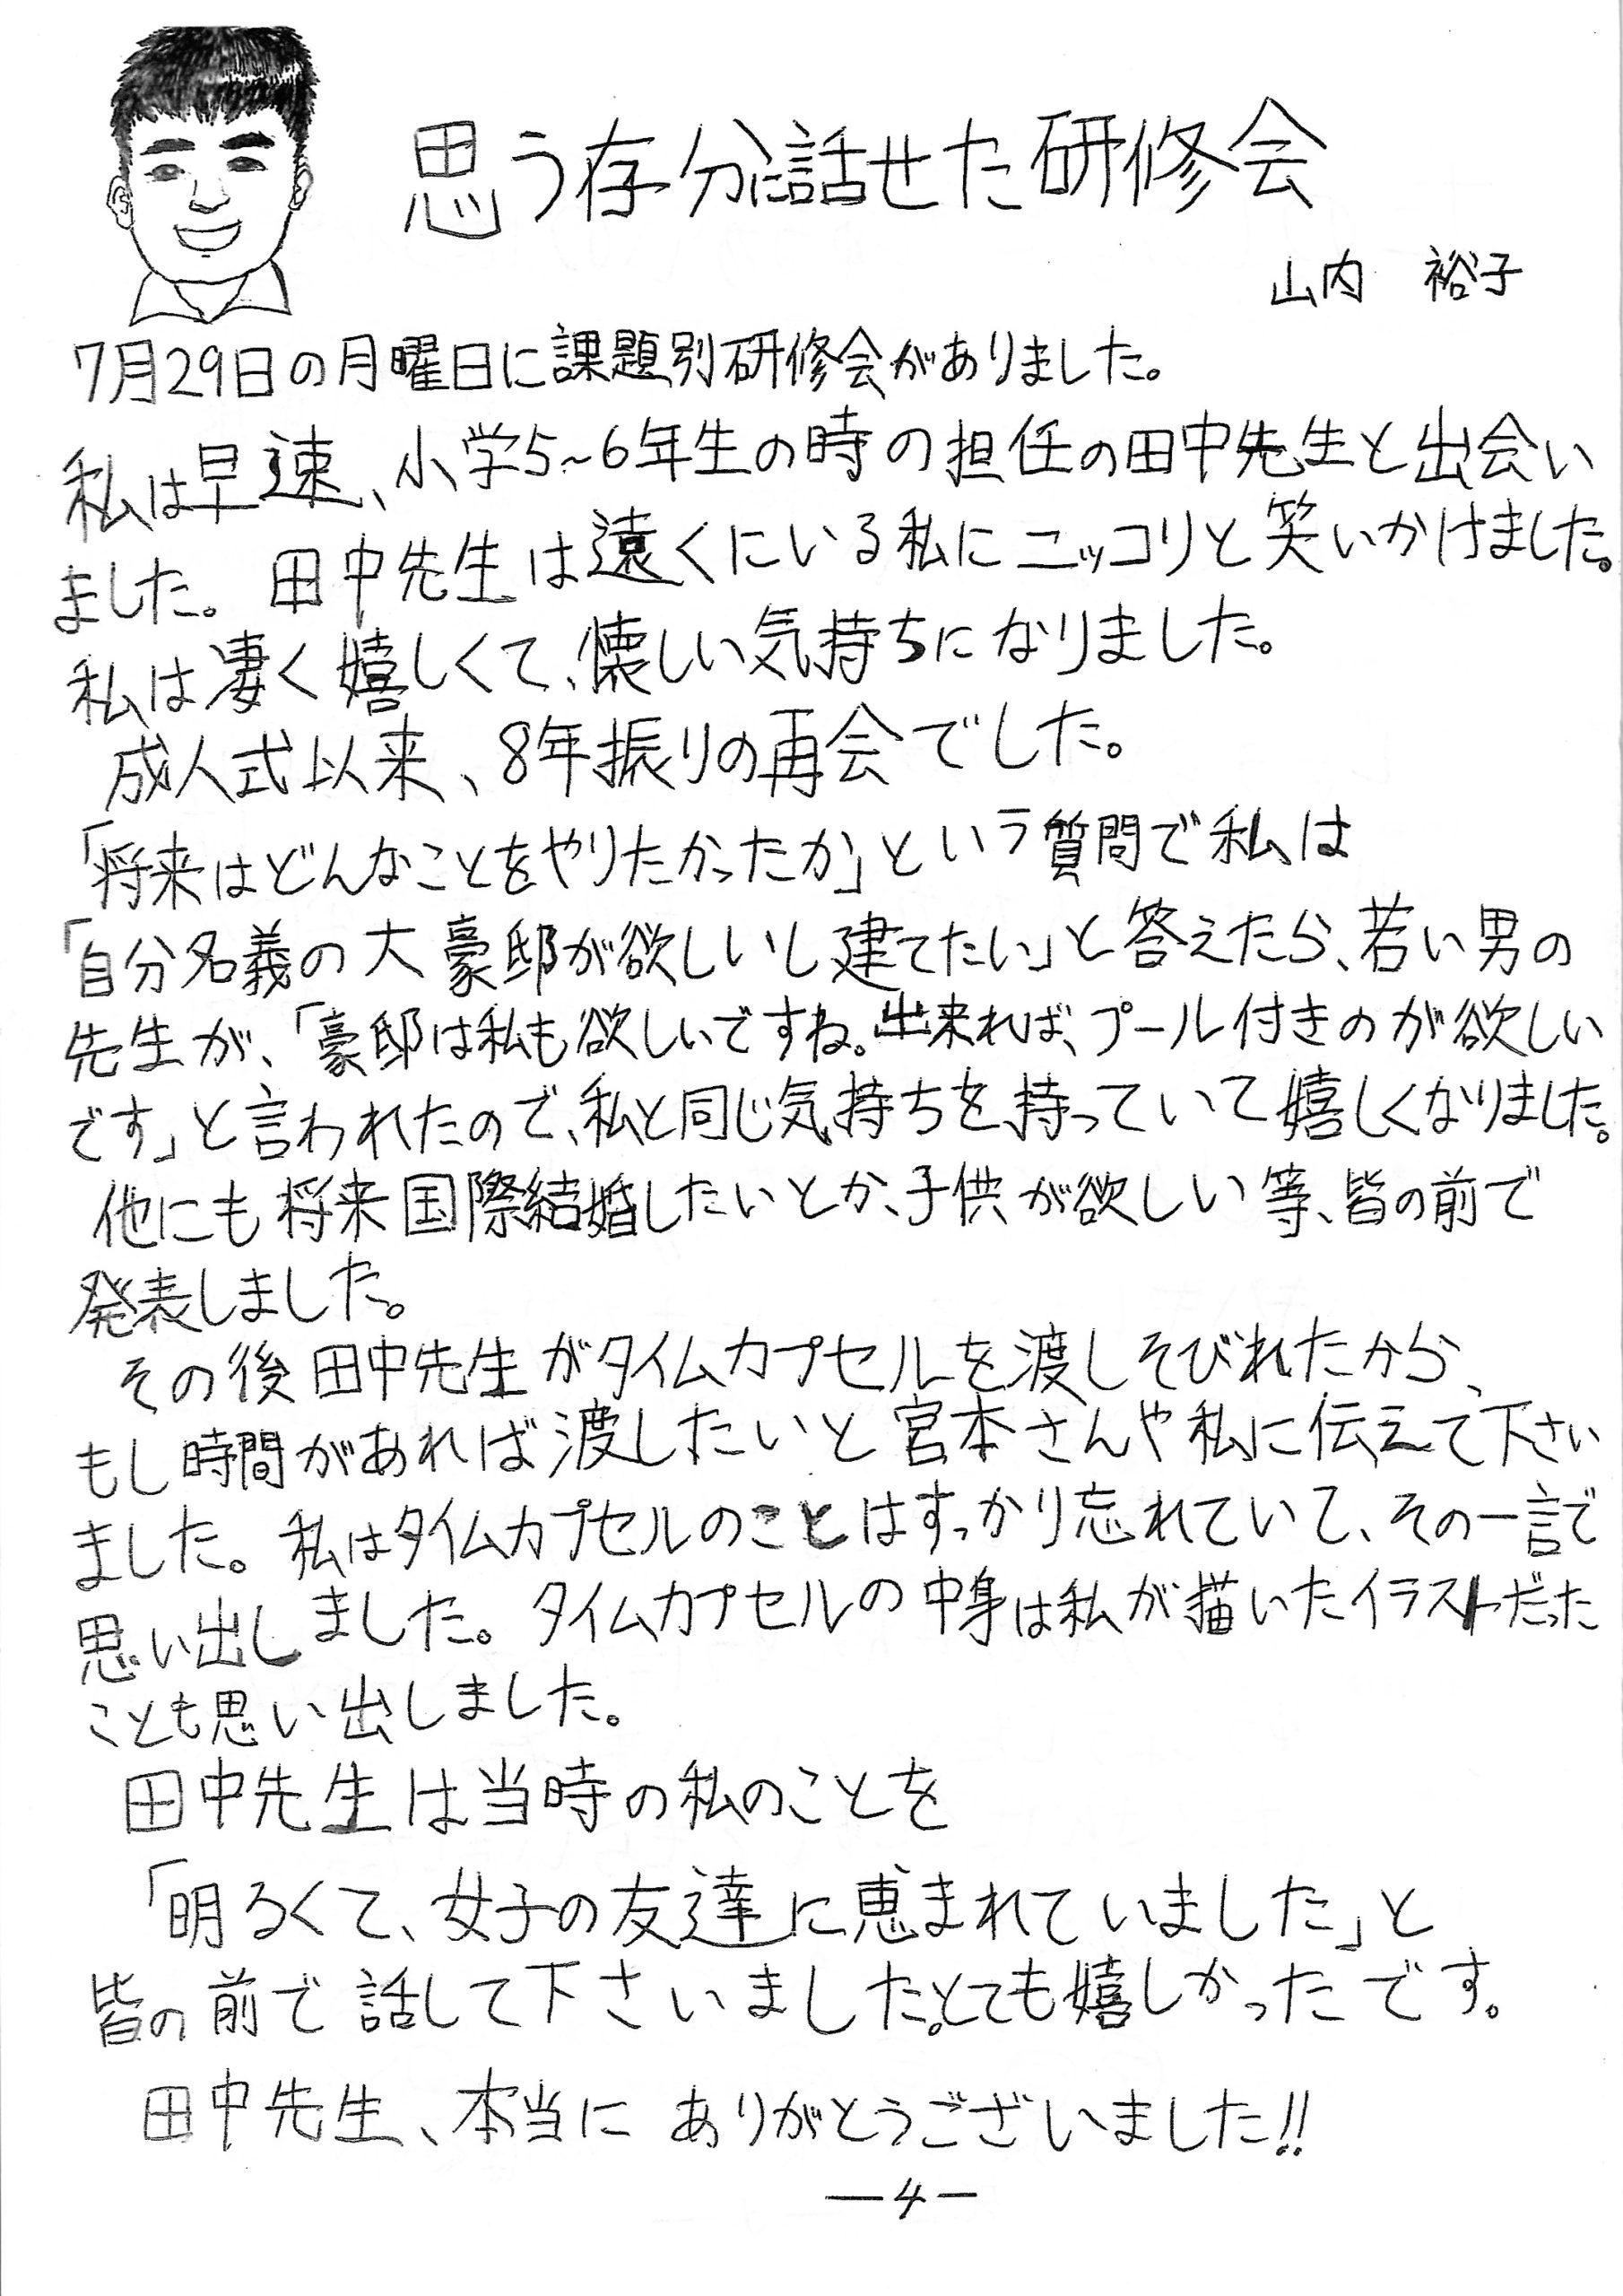 思う存分に話せた研修会
山内 裕子
7月29日の月曜日に課題別研修会がありました。
私は早速、小学5~6年生の時の担任の田中先生と出会い
ました。田中先生は遠くにいる私にニッコリと笑いかけました。
私は凄く嬉しくて、懐しい気持ちになりました。
成人式以来、8年振りの再会でした。
「将来はどんなことをやりたかったか」という質問で私は
「自分名義の大豪邸が欲しいし建てたい」と答えたら、若い男の
先生が、「豪邸は私も欲しいですね。出来れば、プール付きのが欲しい
です」と言われたので、私と同じ気持ちを持っていて嬉しくなりました。
他にも将来国際結婚したいとか、子供が欲しい等、皆の前で
発表しました。
その後田中先生がタイムカプセルを渡しそびれたから、
もし時間があれば渡したいと宮本さんや私に伝えて下さい
ました。私はタイムカプセルのことはすっかり忘れていて、その一言で
思い出しました。タイムカプセルの中身は私が描いたイラストだった
ことも思い出しました。
田中先生は当時の私のことを
「明るくて、女子の友達に恵まれていました」と
皆の前で話して下さいました。とても嬉しかったです。
田中先生、本当にありがとうございました!!
—4—